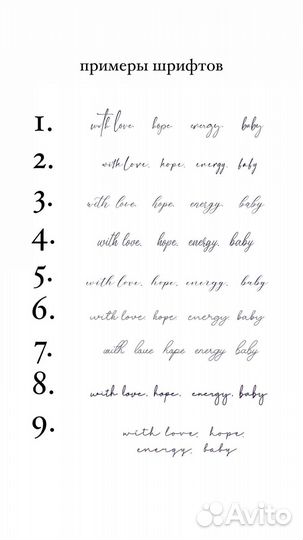 примеры шрифтов
1. with love hope energy. baby
2. with love, hope, energy, baby
3. with love, hope, energy, baby
4. with love, hope, energy, baby
5. with love, hope, energy, baby
6. with love hope energy baby
7. with love hope energy baby
8. with love, hope, energy, baby
9. with love, hope,
energy, baby
Avito